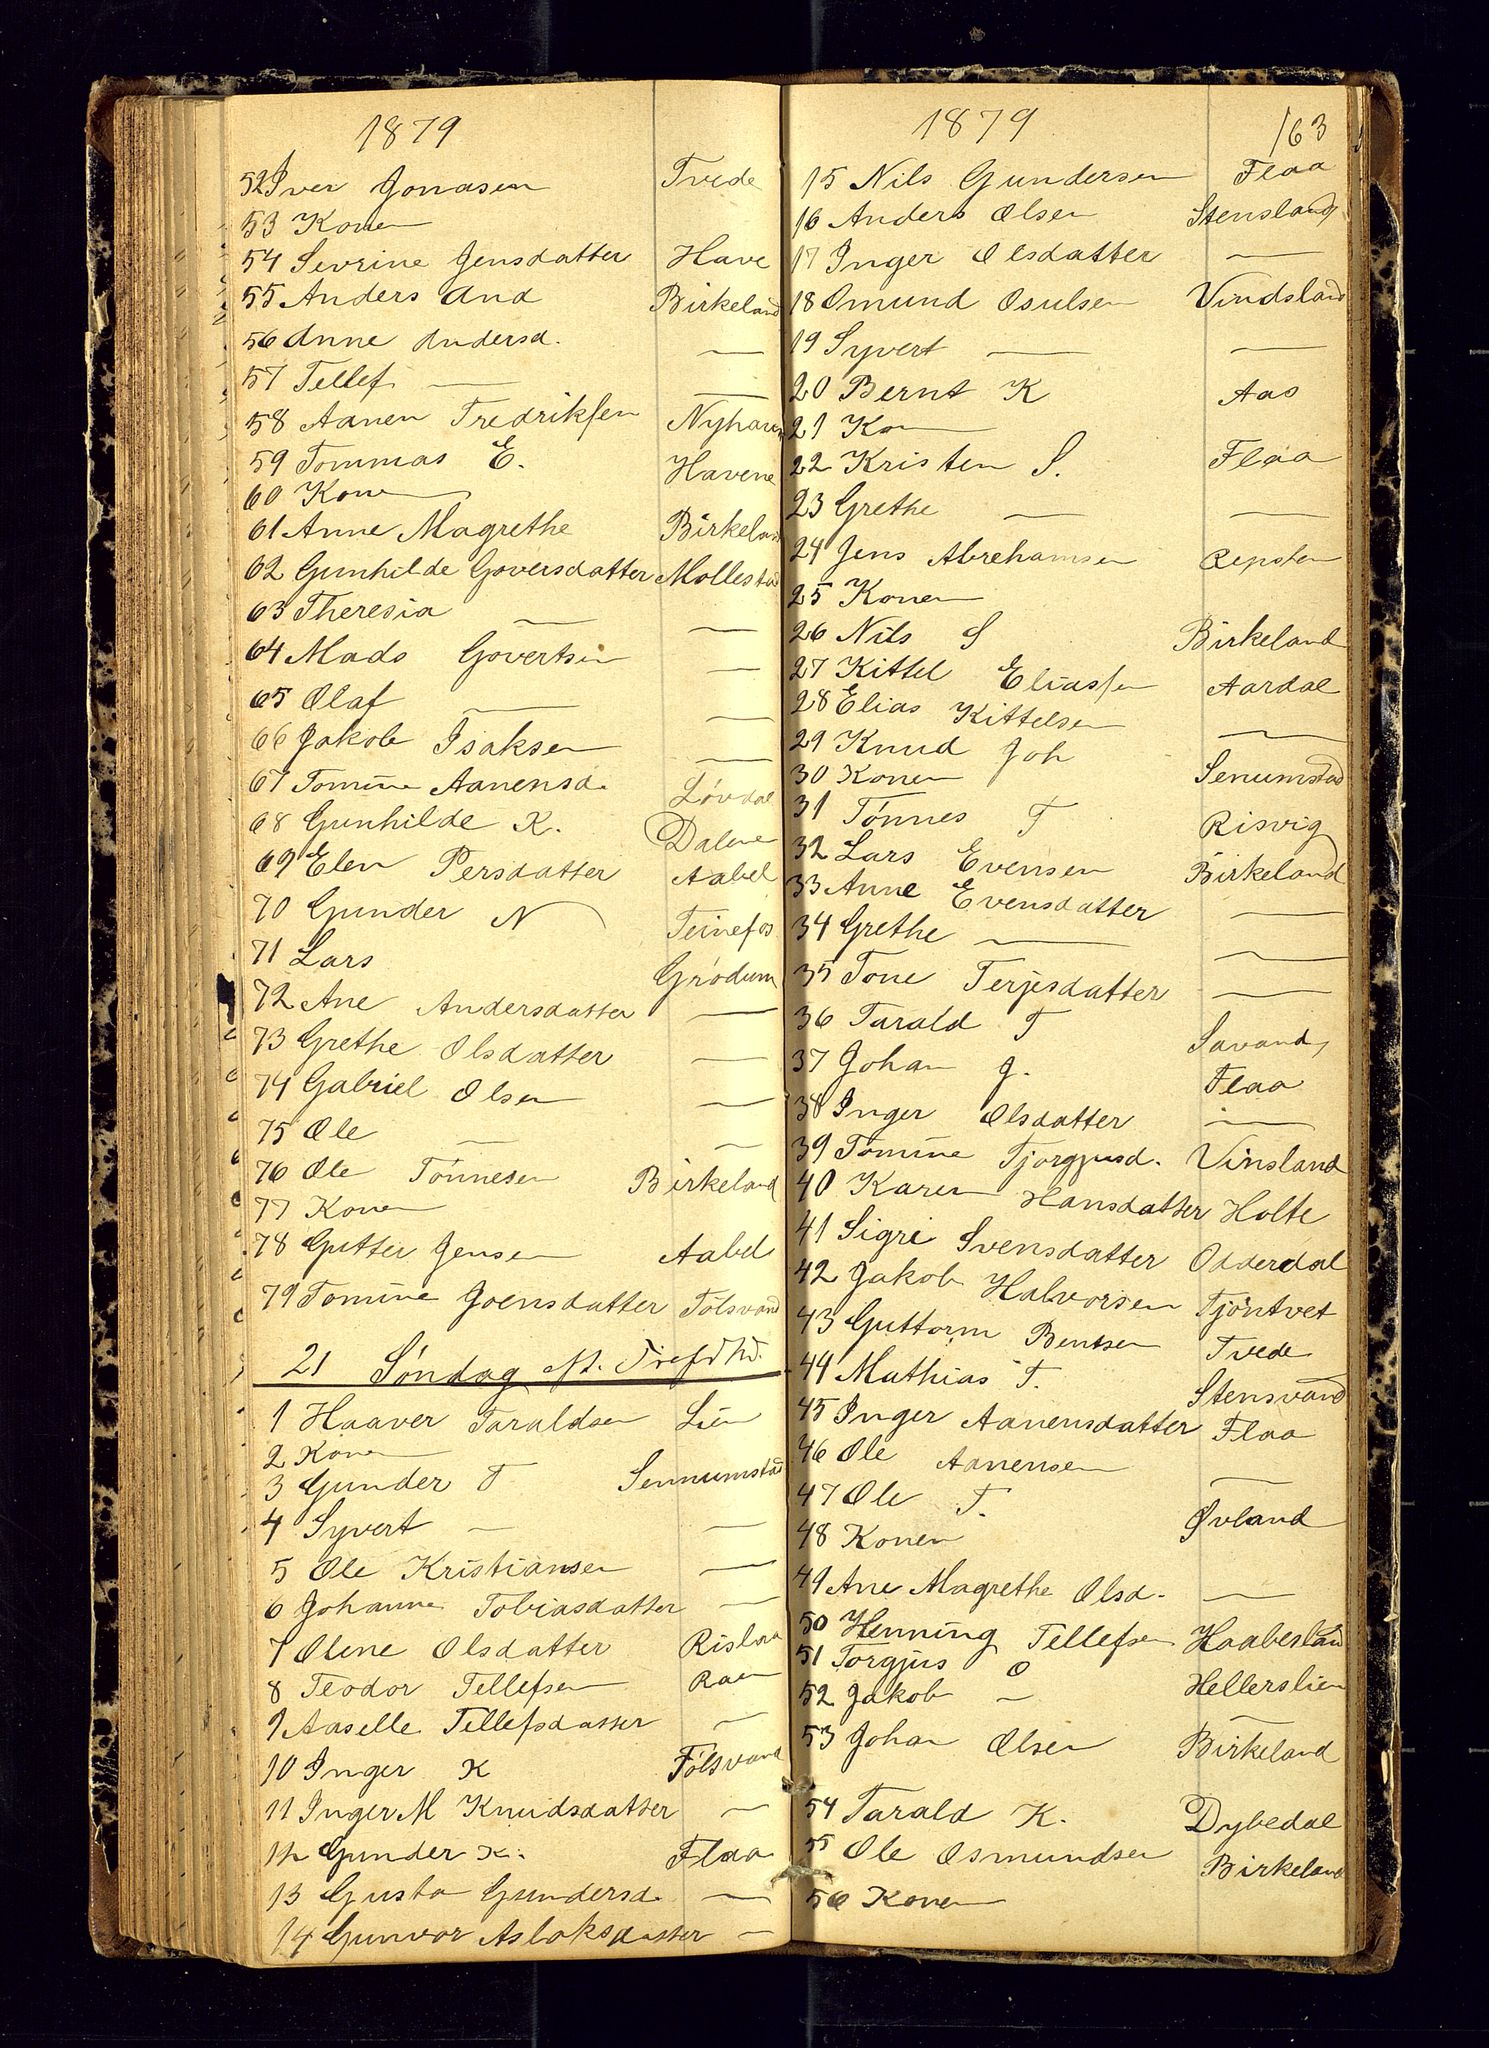 1879
52 Iver Jonasen Tvede
53 Konen
54 Sevrine Jensdatter Have
55 Anders And Birkeland
56 Anne Andersd. —
57 Tellef — —
58 Aanen Fredriksen Nyhaven
59 Tommas E. Havene
60 Konen
61 Anne Magrethe Birkeland
62 Gunhilde Goversdatter Mollestad
63 Theresia — —
64 Mads Govertsen —
65 Olaf — —
66 Jakob Isaksen —
67 Tomine Aanensd. Løvdal
68 Gunhilde K. Dalene
69 Elen Persdatter Aabel
70 Gunder N Teinefos
71 Lars Grødum
72 Ane Andersdatter —
73 Grethe Olsdatter —
74 Gabriel Olsen —
75 Ole — —
76 Ole Tönnesen Birkeland
77 Konen
78 Gutter Jensen Aabel
79 Tomine Joensdatter Tolsvand
21 Søndag eft. Trefdhd.
1 Haaver Taraldsen Lien
2 Konen
3 Gunder T Sennumstad
4 Syvert — —
5 Ole Kristiansen —
6 Johanne Tobiasdatter —
7 Oline Olsdatter
8 Teodor Tellefsen Raen
9 Aaselle Tellefsdatter —
10 Inger K Tolsvand
11 Inger M Knudsdatter —
12 Gunder K. Flaa
13 Gusta Gundersd. —
14 Gunvor Aslaksdatter —
1879 163
15 Nils Gundersen Flaa
16 Anders Olsen Stensland
17 Inger Olsdatter —
18 Omund Osulsen Vindsland
19 Syvert — —
20 Bernt K Aas
21 Kon
22 Kristen S. Flaa
23 Grethe — —
24 Jens Abrehamsen Repsten
25 Konen
26 Nils S Birkeland
27 Kittel Eliassen Aardal
28 Elias Kittelsen —
29 Knud Joh
30 Konen Senumstad
31 Tönnes T Risvig
32 Lars Evensen Birkeland
33 Anne Evensdatter —
34 Grethe — —
35 Tone Terjesdatter —
36 Tarald T Savand
37 Johan J. Flaa
38 Inger Olsdatter —
39 Tomine Tjorgjusd. Vinsland
40 Karen Hansdatter Holte
41 Sigri Svensdatter Odderdal
42 Jakob Halvorsen Tjöntvet
43 Guttorm Bentsen Tvede
44 Mathias T. Stensvand
45 Inger Aanensdatter Flaa
46 Ole Aanensen —
47 Ole T. Øvland
48 Konen
49 Ane Magrethe Olsd. —
50 Henning Tellefsen Haabesland
51 Torgjus O Hellerslien
52 Jakob — —
53 Johan Olsen Birkeland
54 Tarald K. Dybedal
55 Ole Osmundsen Birkeland
56 Konen